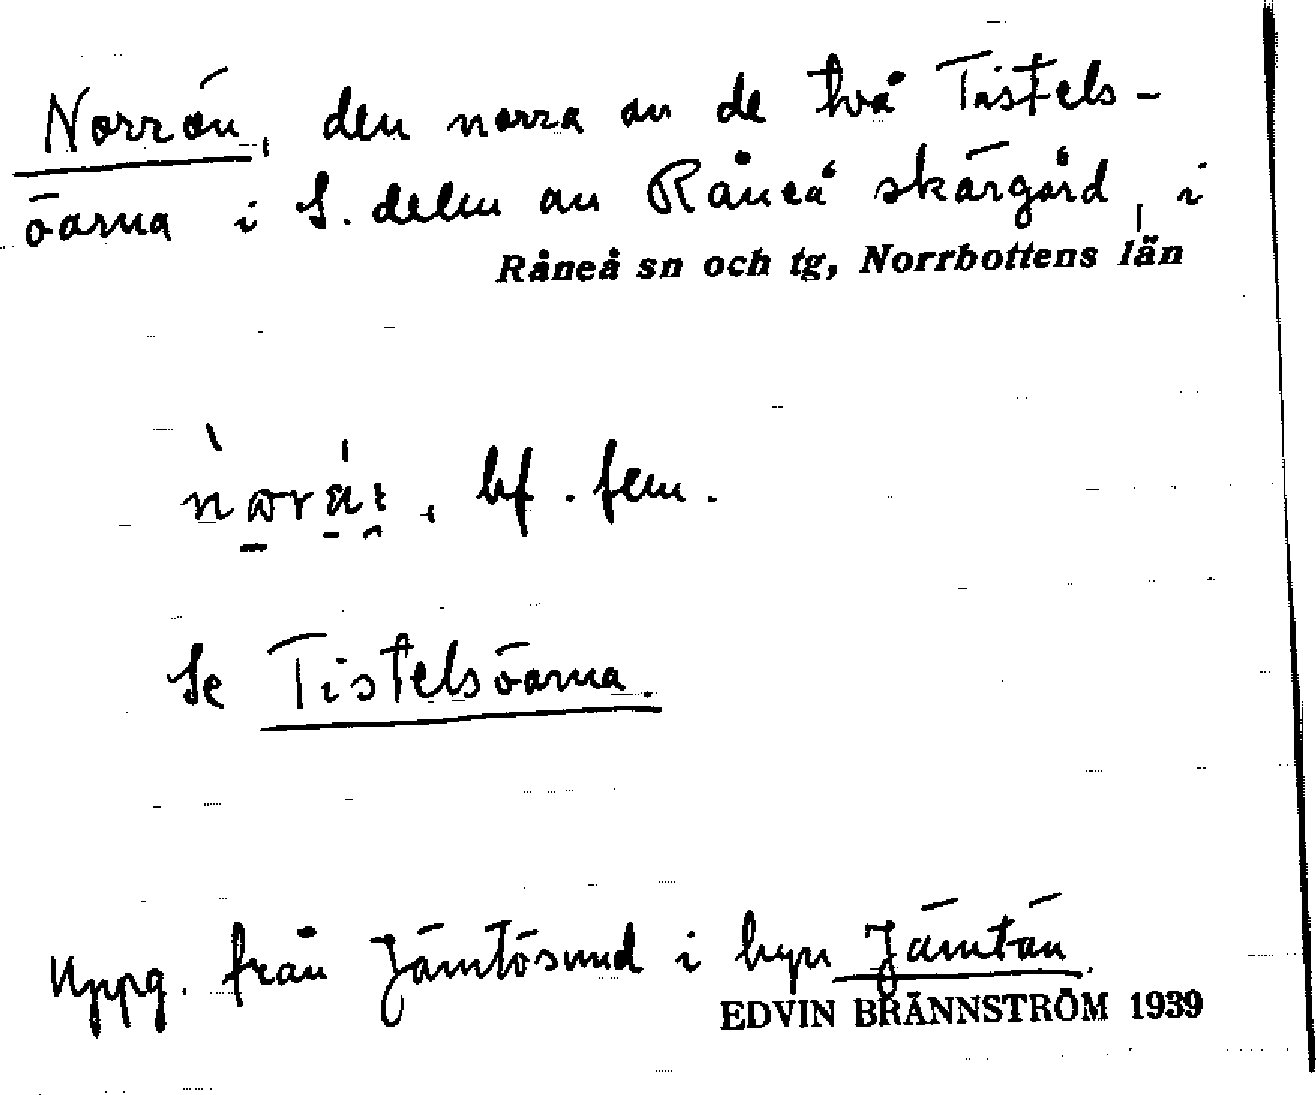 Norrön, den norra av de två Tistels-
öarna i S. delen av Råneå skärgård, i
Råneå sn och tg, Norrbottens län
bf. fem.
Se Tistelsöarna.
Uppg. från Jämtösund i byn Jämtön.
EDVIN BRÄNNSTRÖM 1939